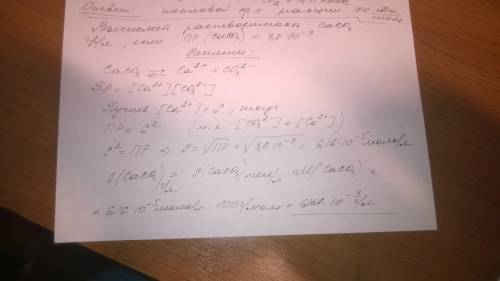 Ответ: тепловой эф. реакции 180 кДж/моль
Вычислить растворимость CaCO3
гр/л, если ПР(CaCO3) = 3,8·10⁻⁹
Решение:
CaCO3 ⇄ Ca²⁺ + CO3²⁻
ПР = [Ca²⁺][CO3²⁻]
Пусть [Ca²⁺] = S, тогда
ПР = S² (т.к. [CO3²⁻] = [Ca²⁺])
S² = ПР ⇒ S = √ПР = √3,8·10⁻⁹ = 6,16·10⁻⁵ моль/л
S(CaCO3) г/л = S(CaCO3) моль/л · M(CaCO3) =
= 6,16·10⁻⁵ моль/л · 100 г/моль = 6,16·10⁻³ г/л